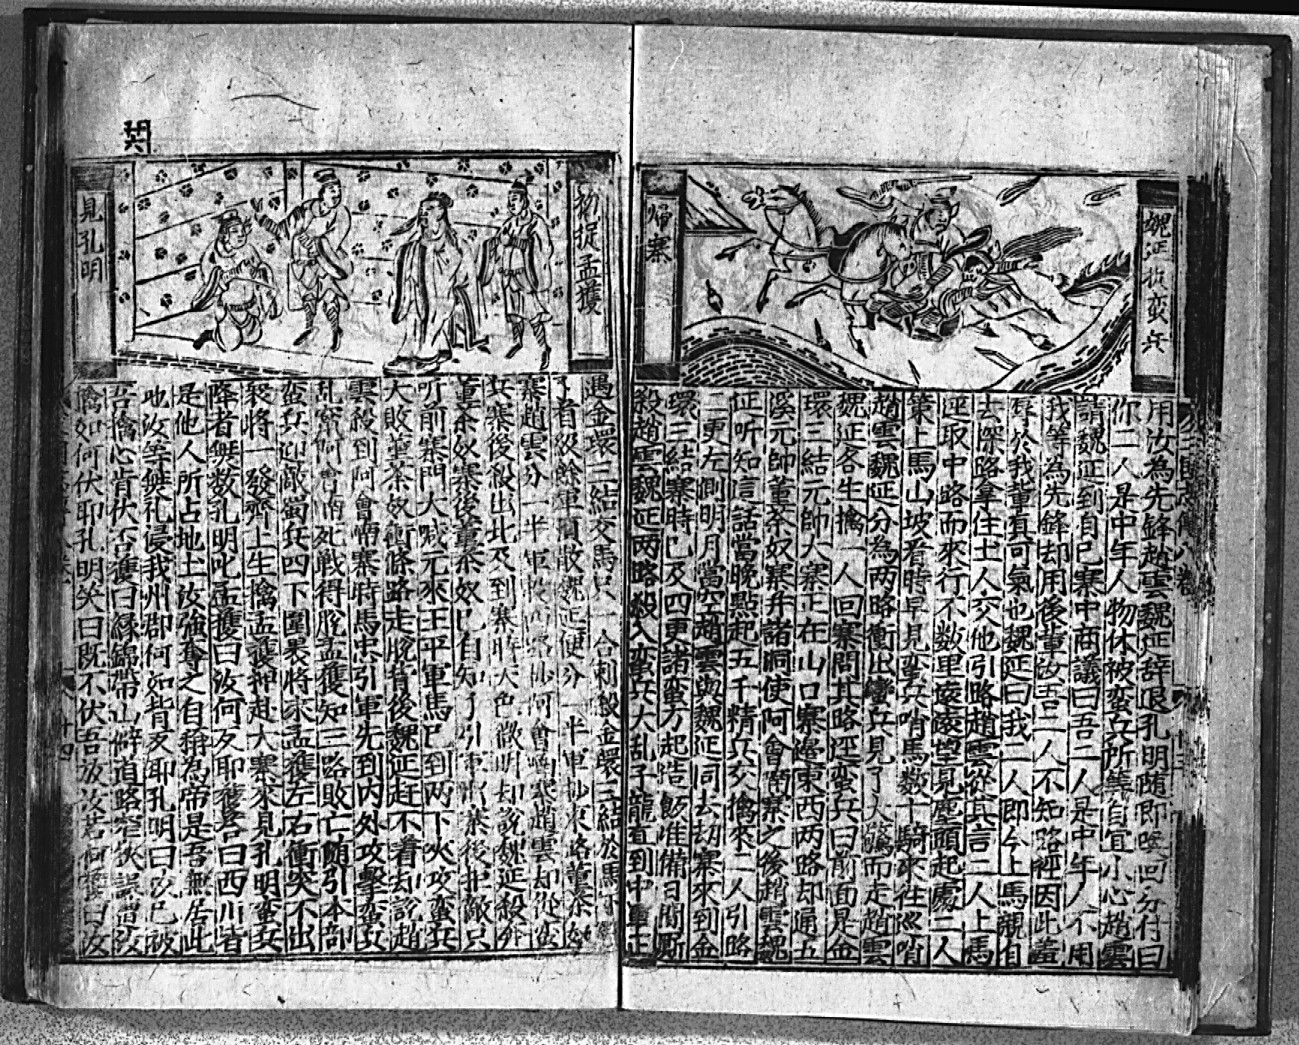 魏延捉蛮兵
歸寨
用汝為先鋒趙雲魏延辞退孔明随即喚回分付曰
你二人是中年人物休被蛮兵所筭自宜小心趙雲
請魏延到自己寨中商議曰吾二人是中年人不用
我等為先鋒却用後軰汝吾二人不知路徑因此羞
辱於我軰真可氣也魏延曰我二人即今上馬親自
去深路拿住土人交他引路趙雲從其言二人上馬
迳取中路而來行不数里遠望見塵頭起處二人
策上馬山坡看時早見蛮兵哨馬数十騎來往巡哨
趙雲魏延分為两路衝出蠻兵見了大驚而走趙雲
魏延各生擒一人回寨問其路迳蛮兵曰前面是金
環三結元帥大寨正在山口寨邊東西两路却通五
溪元帥董荼奴寨并諸洞使阿會喃寨之後趙雲魏
延听知信話當晚點起五千精兵交擒來二人引路
二更左側明月當空趙雲與魏延同去劫寨來到金
環三結寨時已及四更諸蛮方起造飯准備日間厮
殺趙雲魏延两路殺入蛮兵大乱子龍直到中軍正
初捉孟獲
見孔明
遇金環三結交馬只一合刺殺金環三結於馬下
了首級餘軍潰散魏延便分一半軍抄東路董荼奴
寨趙雲分一半軍投西路抄阿會喃寨趙雲却從
兵寨後殺出比及到寨時天色微明却說魏延殺奔
董荼奴寨後董荼奴已自知了引軍寨後拒敵只
听前寨門大喊元來王平軍馬已到两下夾攻蛮兵
大敗董荼奴衝條路走脫背後魏延赶不着却說趙
雲殺到阿會喃寨時馬忠引軍先到内外攻擊蛮兵
乱竄阿會喃死戦得脫孟獲知三路敗亡随引本部
蛮兵迎敵蜀兵四下圍裹將來孟獲左右衝突不出
衆將一發齊上生擒孟獲押赴大寨來見孔明蛮兵
降者無数孔明叱孟獲曰汝何反耶獲答曰西川皆
是他人所占地土汝強奪之自稱為帝是吾無居此
地汝等無礼侵我州郡何如背反耶孔明曰汝已被
吾擒心肯伏否獲曰緣錦帶山僻道路窄狹誤遭汝
擒如何伏耶孔明笑曰既不伏吾放汝若何獲曰汝